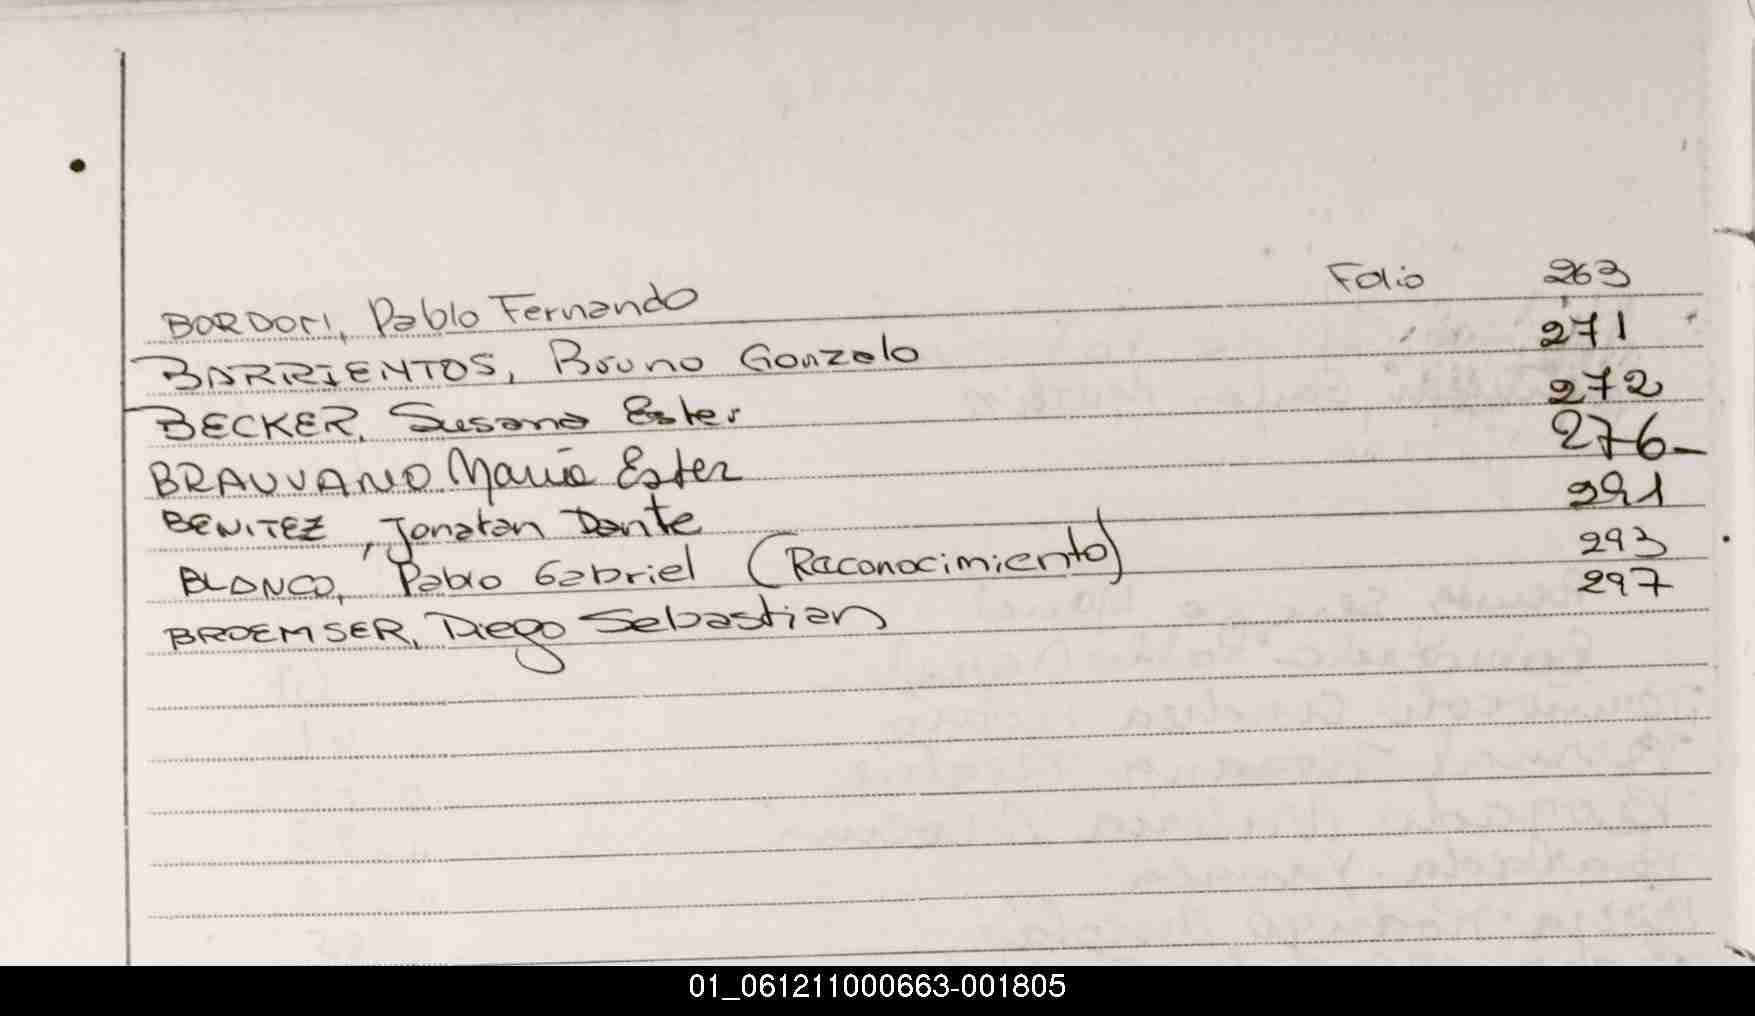 BORDONI, Pablo Fernando Folio 263
BARRIENTOS, Bruno Gonzalo 271
BECKER, Susana Ester 272
BRAVVANO María Ester 276-
BENITEZ, Jonatan Dante 291
BLANCO, Pablo Gabriel (Raconocimiento) 293
BROEMSER, Diego Sebastian 297
01_061211000663-001805